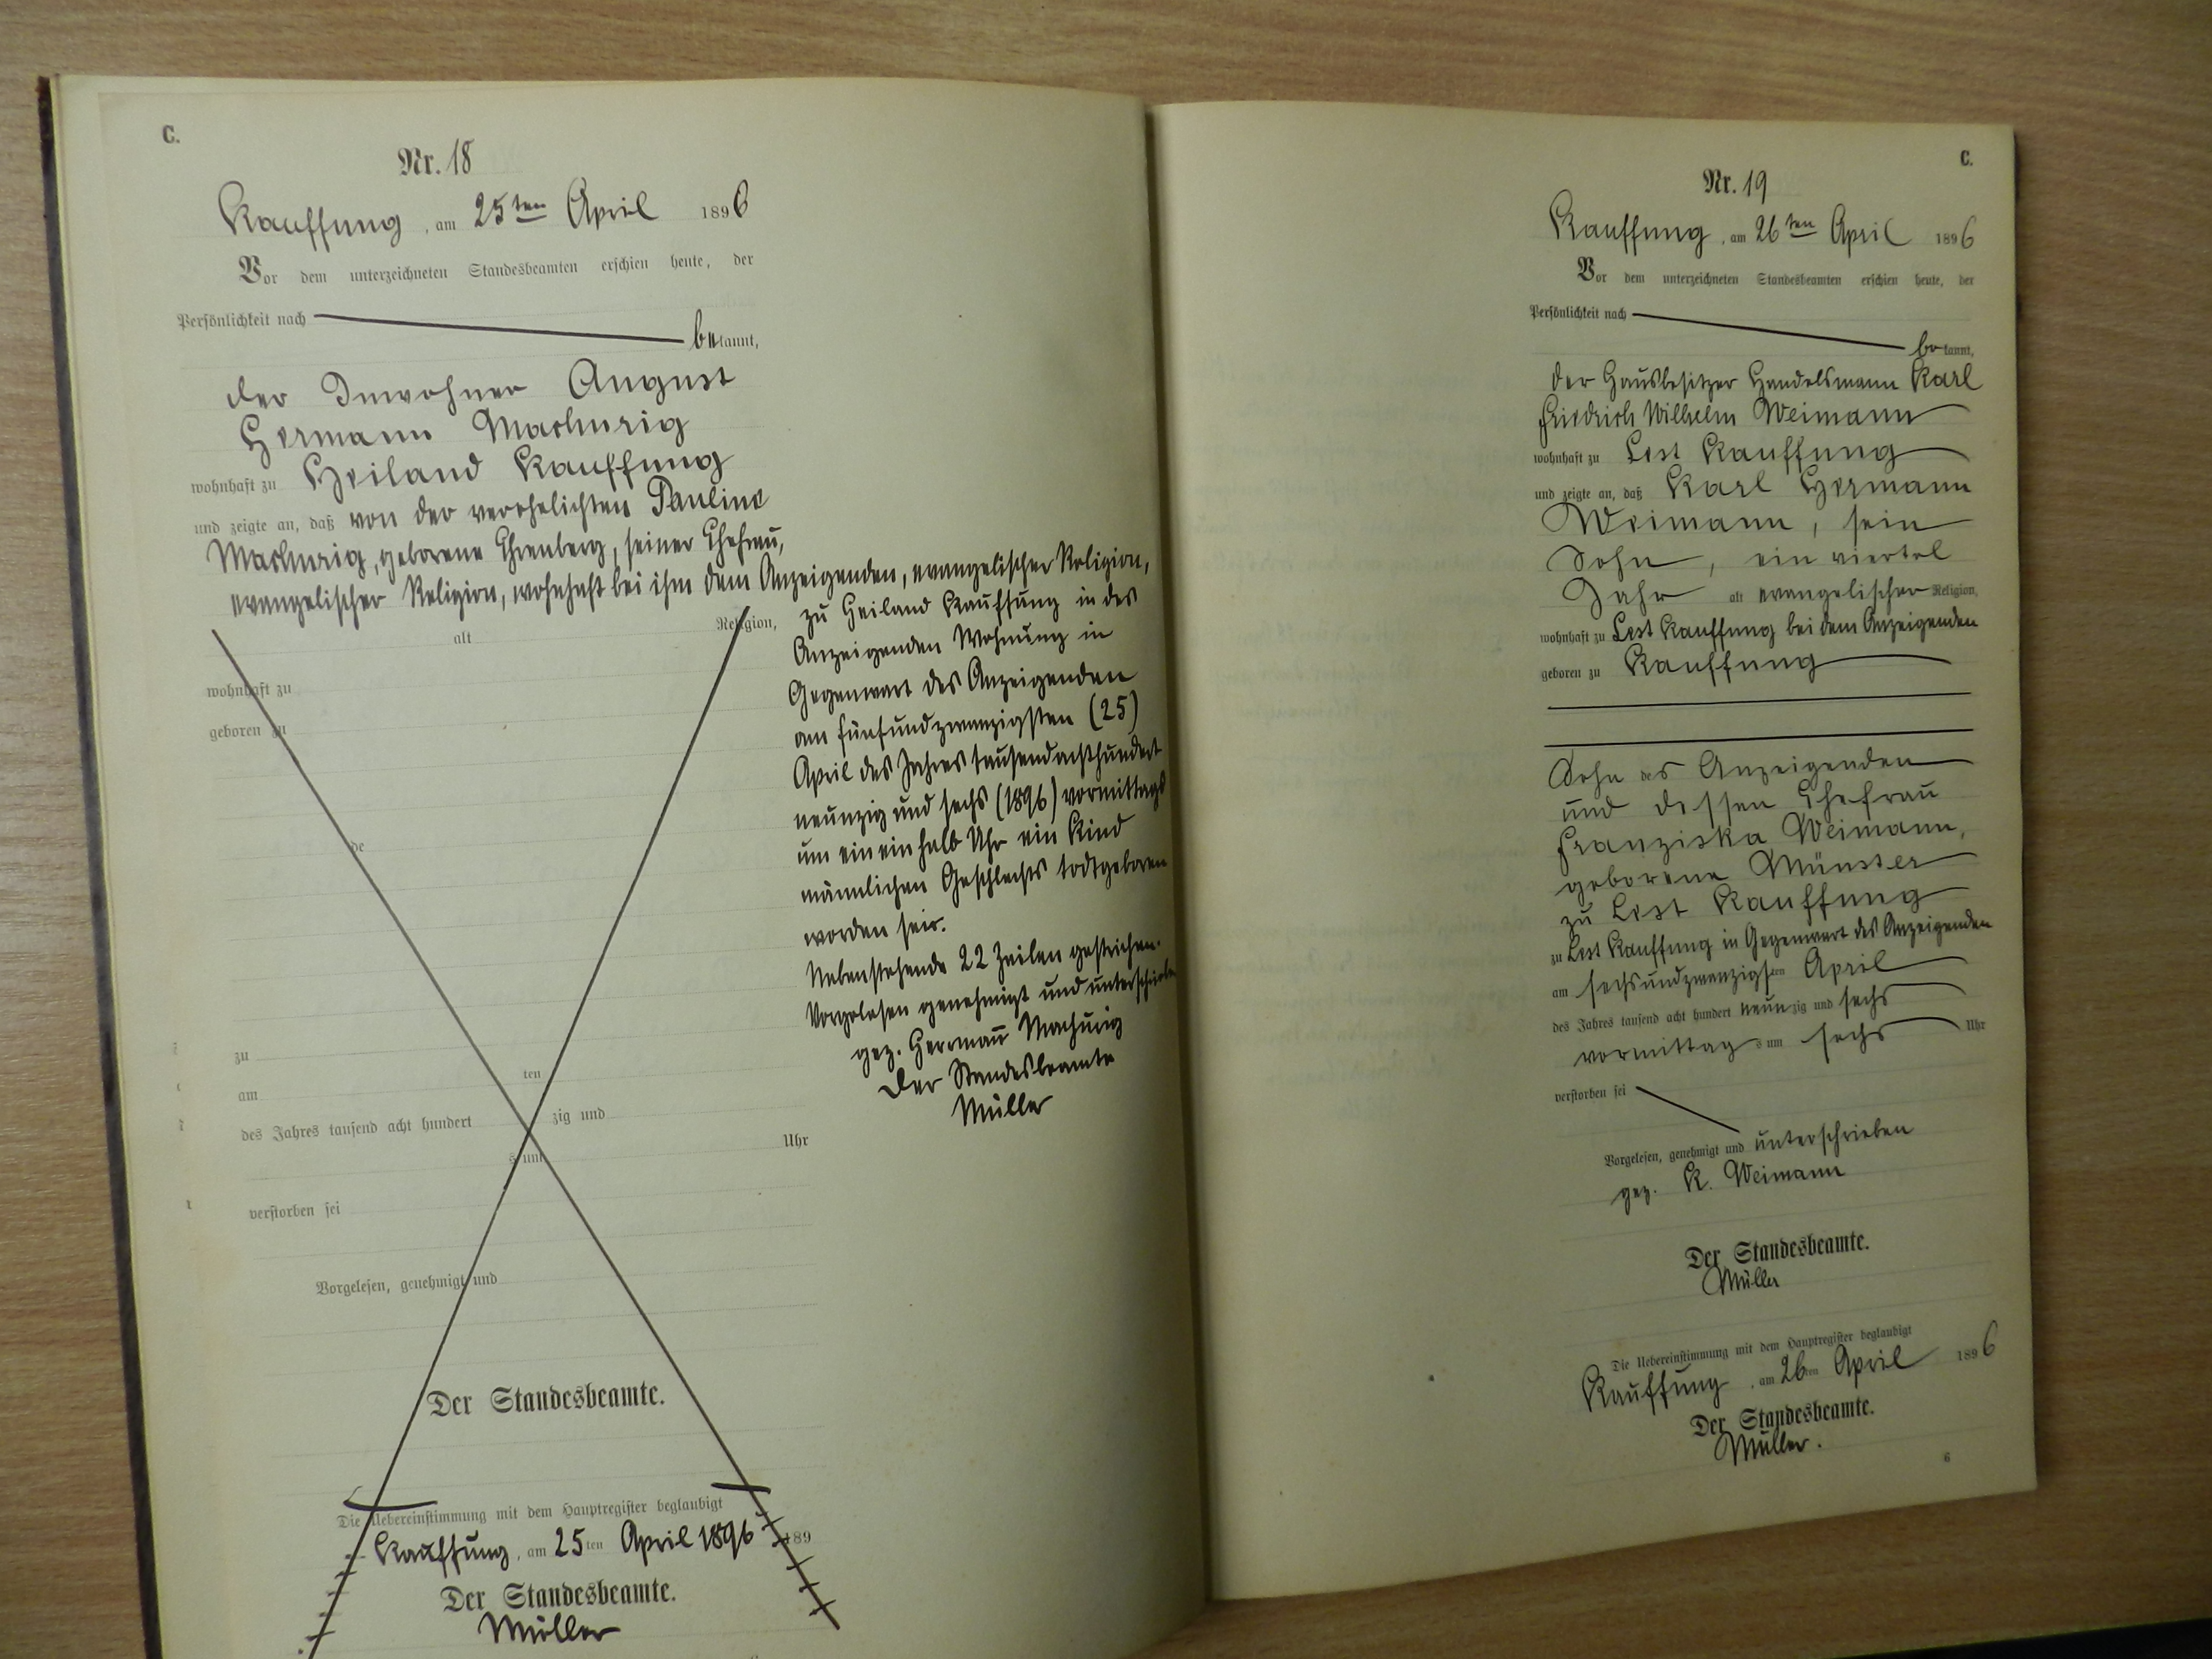 C.
Nr. 18
Kauffung, am 25ten April 1896
Vor dem unterzeichneten Standesbeamten erschien heute, der
Persönlichkeit nach
bekannt,
der Inwohner August
Hermann Machurig
wohnhaft zu Heiland Kauffung
und zeigte an, daß von der verehelichten Pauline
Machurig, geborene Ehrenberg, seiner Ehefrau,
evangelischer Religion, wohnhaft bei ihm dem Anzeigenden, evangelischer Religion,
alt Religion,
wohnhaft zu
geboren zu
de
zu
am ten
des Jahres tausend acht hundert zig und
s um Uhr
verstorben sei
Vorgelesen, genehmigt und
Der Standesbeamte.
zu Heiland Kauffung in des
Anzeigenden Wohnung in
Gegenwart des Anzeigenden
am fünfundzwanzigsten (25)
April des Jahres tausendachthundert
neunzig und sechs (1896) vormittags
um ein einhalb Uhr ein Kind
männlichen Geschlechts todtgeboren
worden sei.
Nebenstehende 22 Zeilen gestrichen.
Vorgelesen genehmigt und unterschrieben
gez. Herrmann Machurig
Der Standesbeamte
Müller
Die Uebereinstimmung mit dem Hauptregister beglaubigt
Kauffung, am 25ten April 1896 189
Der Standesbeamte.
Müller
C.
Nr. 19
Kauffung, am 26ten April 1896
Vor dem unterzeichneten Standesbeamten erschien heute, der
Persönlichkeit nach
bekannt,
der Hausbesitzer Handelsmann Karl
Friedrich Wilhelm Weimann
wohnhaft zu Lest Kauffung
und zeigte an, daß Karl Hermann
Weimann, sein
Sohn, ein viertel
Jahr alt evangelischer Religion,
wohnhaft zu Lest Kauffung bei dem Anzeigenden
geboren zu Kauffung
Sohn des Anzeigenden
und dessen Ehefrau
Franziska Weimann,
geborene Münster
zu Lest Kauffung
zu Lest Kauffung in Gegenwart des Anzeigenden
am sechsundzwanzigsten April
des Jahres tausend acht hundert neunzig und sechs
vormittags um sechs Uhr
verstorben sei
Vorgelesen, genehmigt und unterschrieben
gez. K. Weimann
Der Standesbeamte.
Müller
Die Uebereinstimmung mit dem Hauptregister beglaubigt
Kauffung, am 26ten April 1896
Der Standesbeamte.
Müller.
6